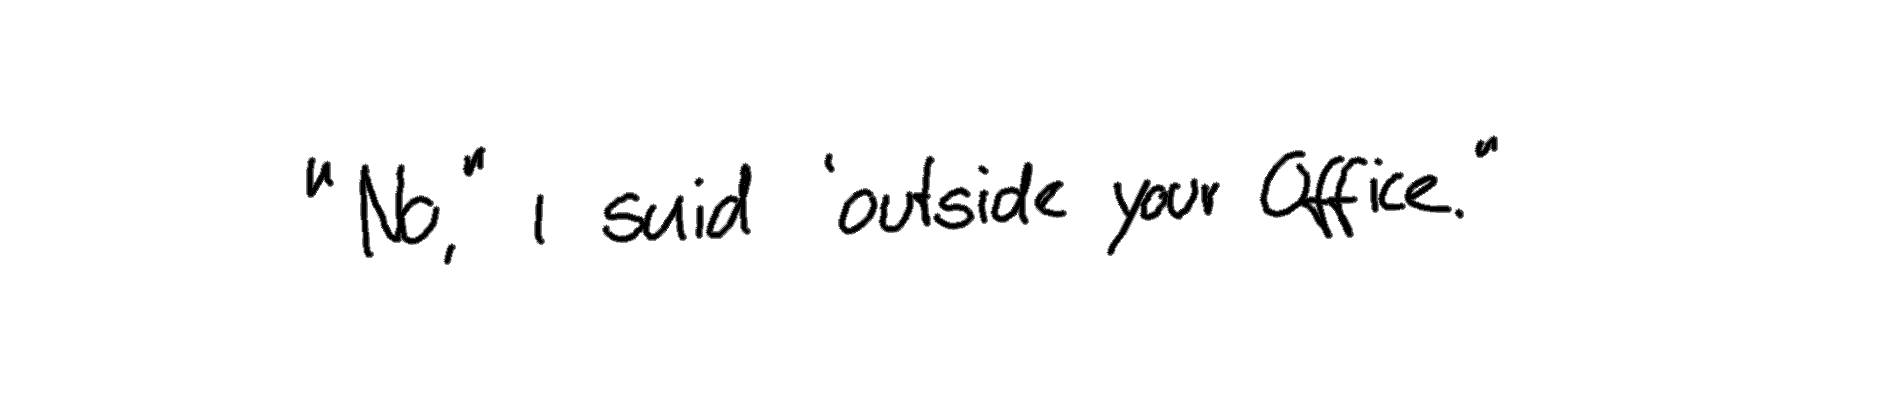 "No," I said 'outside your Office."